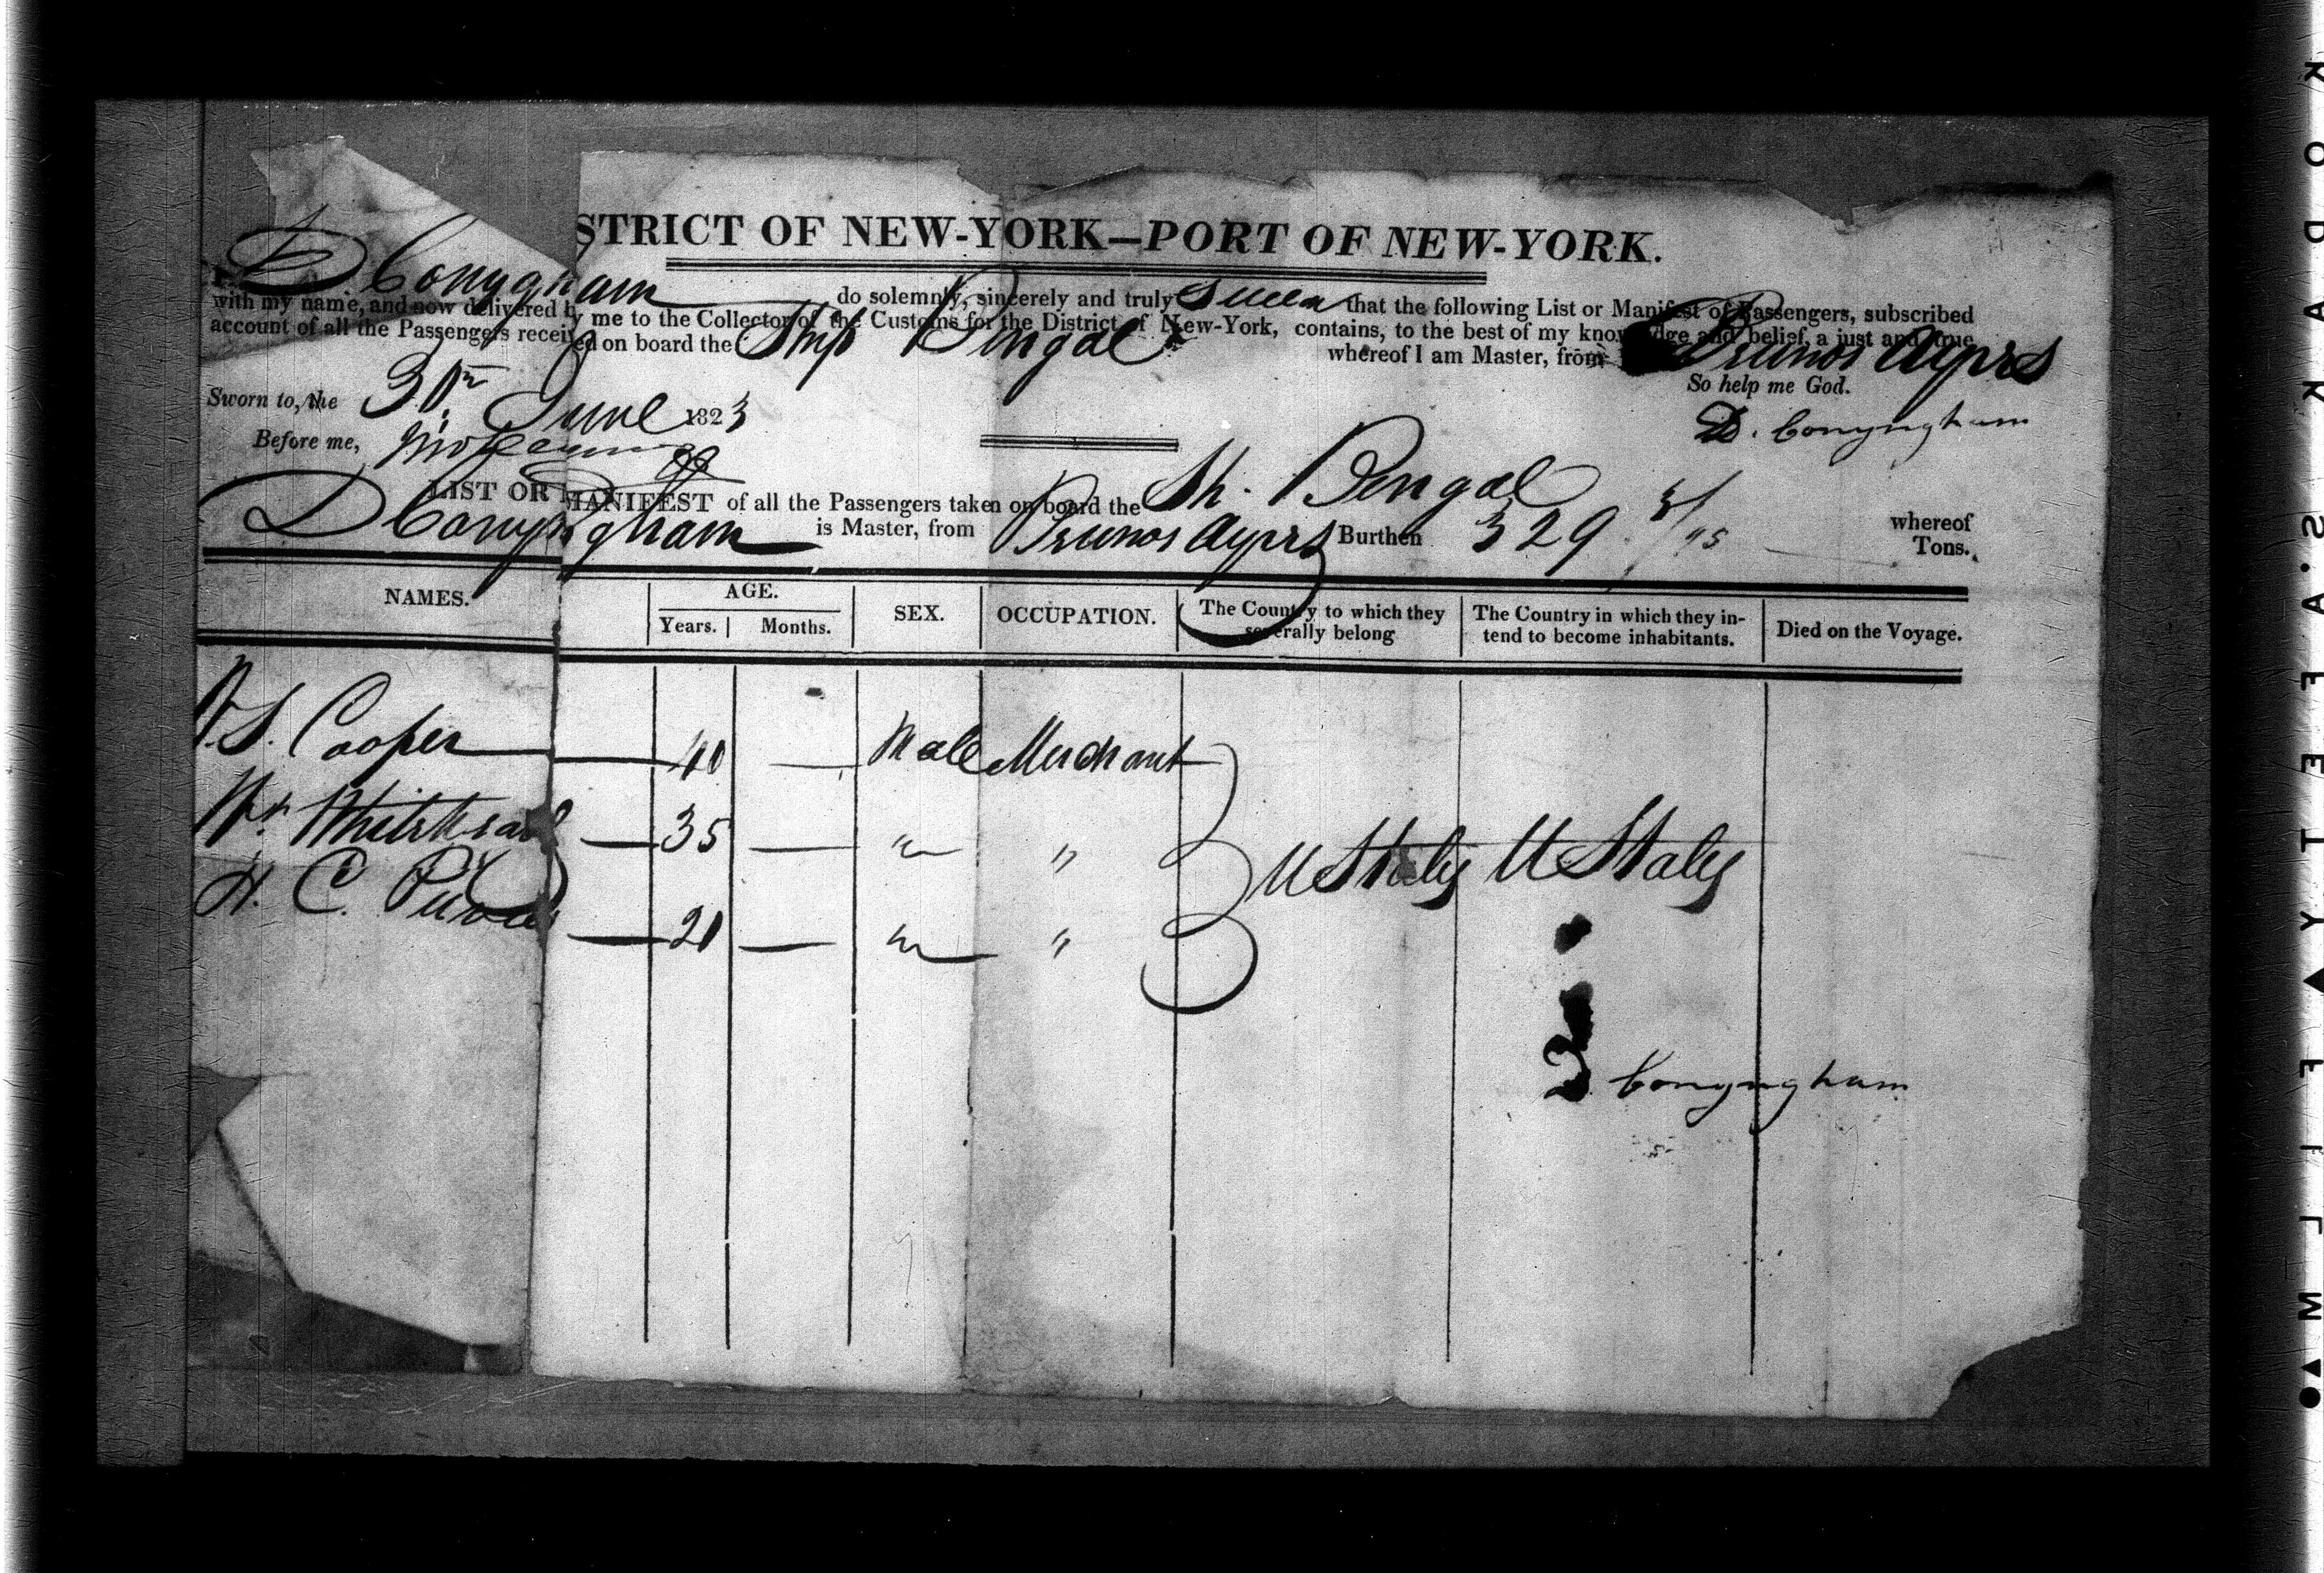 STRICT OF NEW-YORK—PORT OF NEW-YORK.
D Conyngham do solemnly, sincerely and truly Swear that the following List or Manifest of Passengers, subscribed
with my name, and now delivered by me to the Collector of the Customs for the District of New-York, contains, to the best of my knowledge and belief, a just and true
account of all the Passengers received on board the Ship Bengal whereof I am Master, from Buenos Ayres
So help me God.
Sworn to, the 30th June 1823
D. Conyngham
Before me,
LIST OR MANIFEST of all the Passengers taken on board the Sh. Bengal whereof
D Conyngham is Master, from Buenos Ayres Burthen 329 /95 Tons.
NAMES. AGE. SEX. OCCUPATION. The Country to which they severally belong The Country in which they in-tend to become inhabitants. Died on the Voyage.
Years. Months.
S. Cooper 40 — Male Merchant
Whitehead 35 — " "
U States U States
H. C. 21 — " "
D. Conyngham
KODAK SAFETY FILM